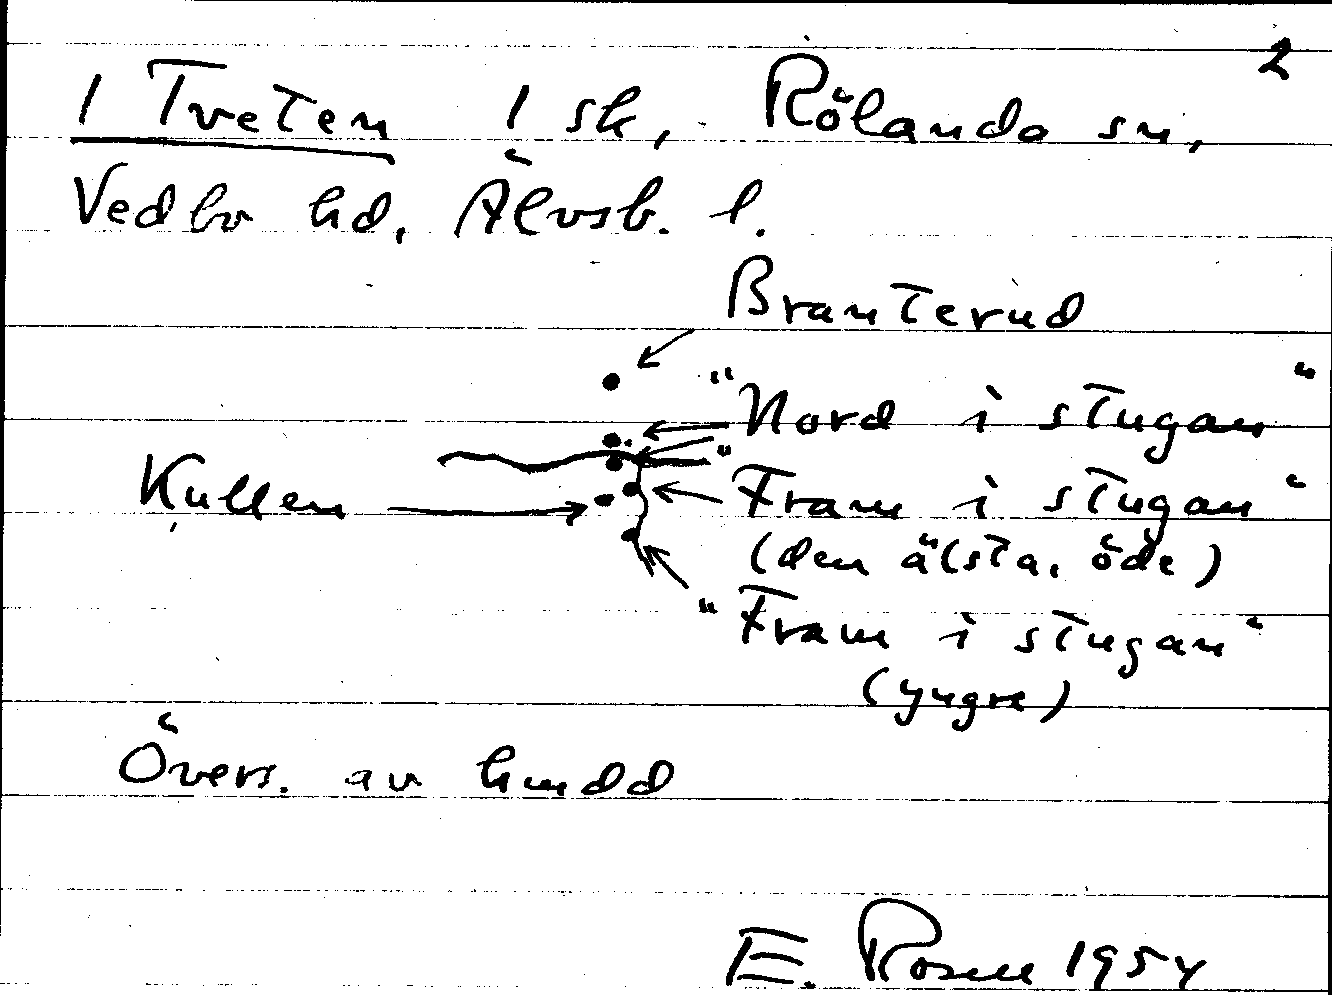 2
1 Tveten 1 sk, Rölanda sn,
Vedbo hd, Älvsb. l.
Branterud
"Nord i stugan"
Kullen "Fram i stugan"
(den älsta, öde)
"Fram i stugan"
(yngre)
Övers. av hmdd
E. Rosell 1954